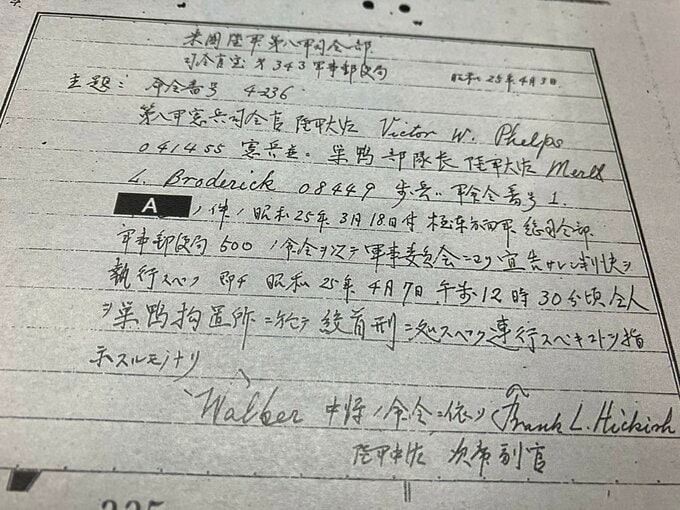 米国陸軍第八軍司令部
司令官室 第343軍事郵便局
昭和25年4月3日
主題: 命令番号 4-236
第八軍憲兵司令官 陸軍大佐 Victor W. Phelps
041455 憲兵 巣鴨部隊長 陸軍大佐 Merle
L. Broderick 08449 歩兵 軍命令番号1.
A ノ件ノ昭和25年3月18日付 極東方面軍 総司令部
軍事郵便局 500 ノ命令ヲ以テ軍事委員会ニヨリ宣告サレシ判決ヲ
執行スベク 即チ 昭和25年4月7日 午前12時30分頃 仝人
ヲ巣鴨拘置所ニ於テ絞首刑ニ処スベク連行スベキコトヲ指
示スルモノナリ
Walker 中将ノ命令ニ依リ Frank L. Hickish
陸軍中佐 次席副官